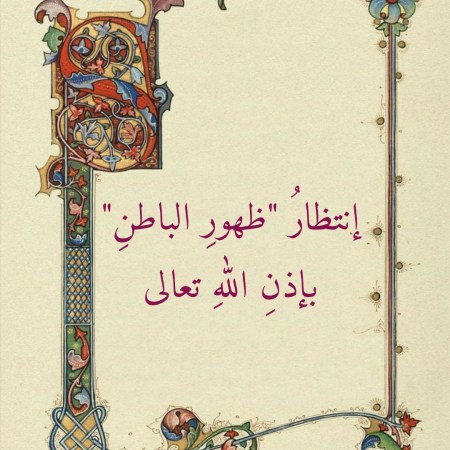 إنتظارُ "ظهورِ الباطنِ"
بإذنِ اللّٰهِ تعالى